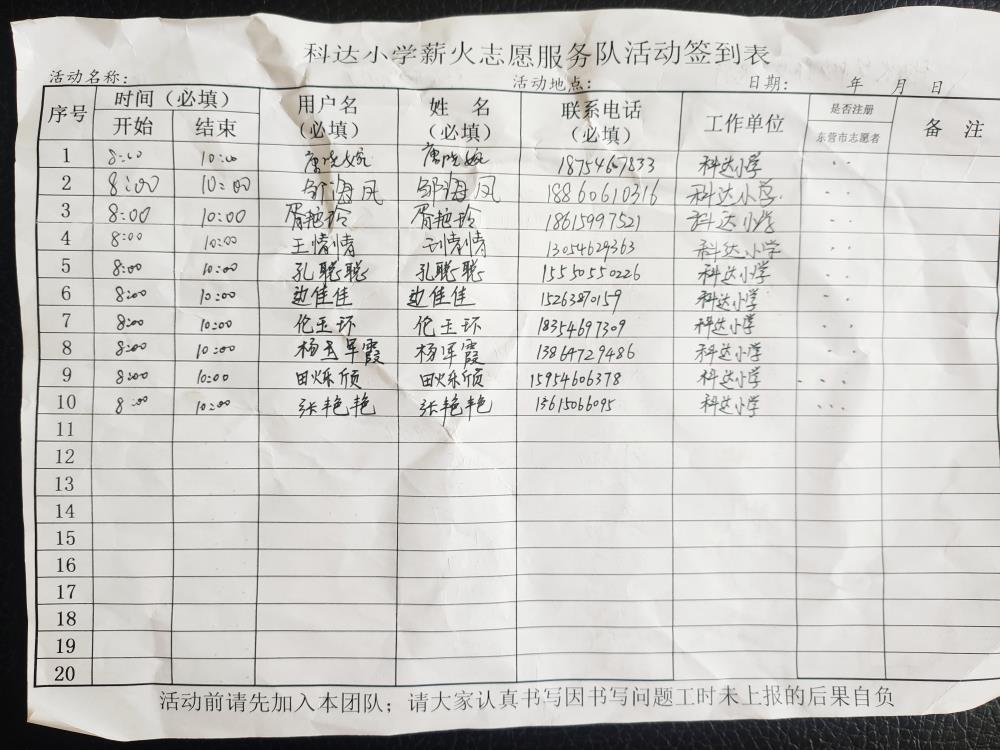 科达小学薪火志愿服务队活动签到表
活动名称： 活动地点： 日期： 年 月 日
序号 时间（必填） 用户名（必填） 姓 名（必填） 联系电话（必填） 工作单位 是否注册 备 注
开始 结束 东营市志愿者
1 8:00 10:00 唐晓婉 唐晓婉 18754467833 科达小学
2 8:00 10:00 邹海凤 邹海凤 18860610316 科达小学
3 8:00 10:00 胥艳玲 胥艳玲 18615997521 科达小学
4 8:00 10:00 王情情 王情情 13054629363 科达小学
5 8:00 10:00 孔聪聪 孔聪聪 15550550226 科达小学
6 8:00 10:00 边佳佳 边佳佳 15263870159 科达小学
7 8:00 10:00 伦玉环 伦玉环 18354697309 科达小学
8 8:00 10:00 杨军霞 杨军霞 13864729486 科达小学
9 8:00 10:00 田烁颀 田烁颀 15954606378 科达小学
10 8:00 10:00 张艳艳 张艳艳 13615066095 科达小学
11
12
13
14
15
16
17
18
19
20
活动前请先加入本团队；请大家认真书写因书写问题工时未上报的后果自负